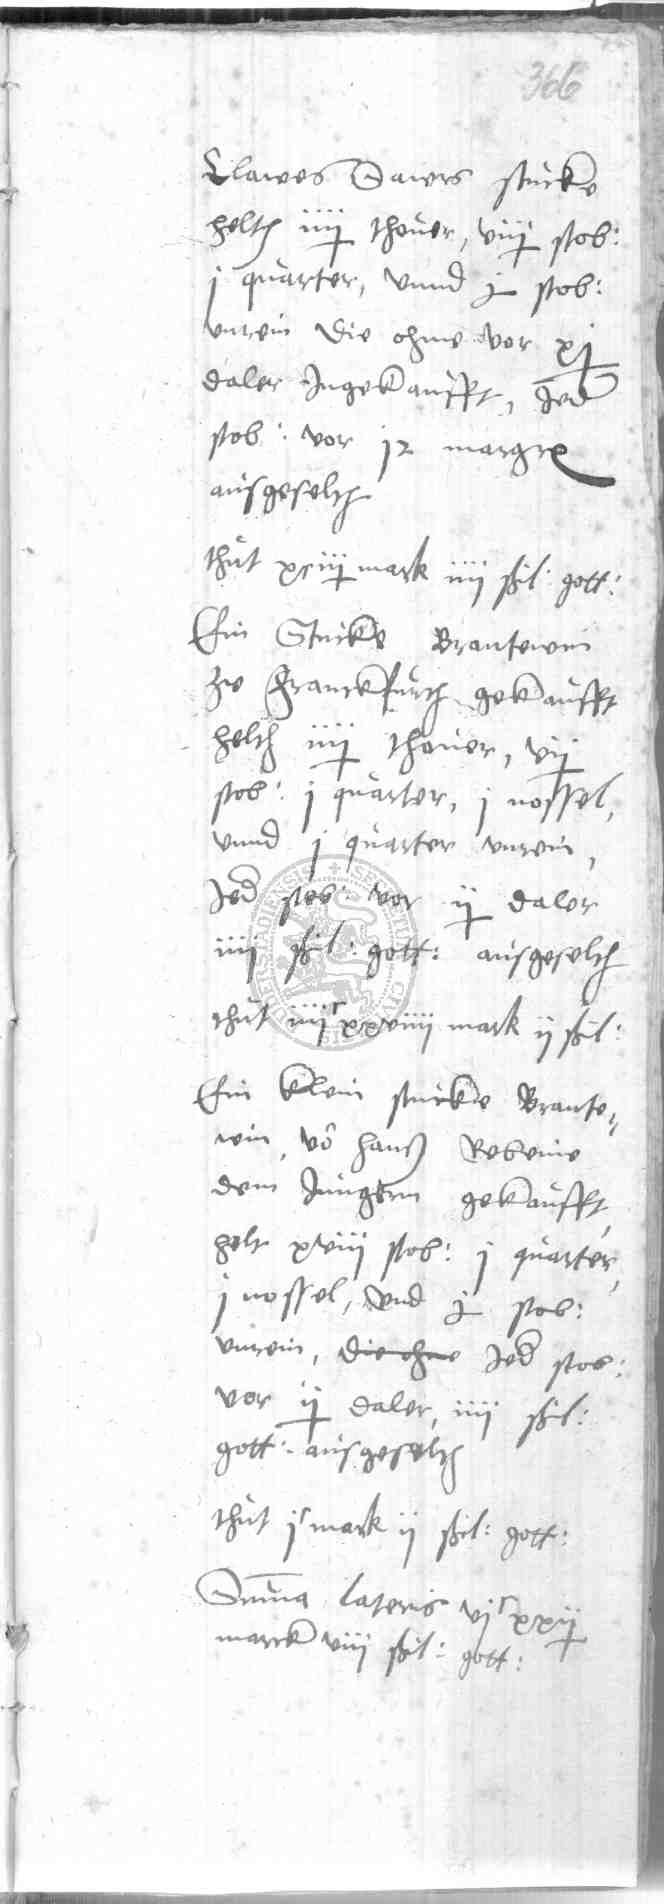 366
Clawes Sawers stucke
helth iiij thover, viij stob:
j quarter, vnnd j stob:
vnrein die ohme vor xj
daler Ingekaufft, Jed
stob: vor jz margr
ausgeselth
thut xciij mark iiij ßil: gott:
Ein Stucke Brantewein
zw Franckfurth gekaufft
helth iiij thover, vij
stob: j quarter, j nossel,
vnnd j quarter vnrein,
Jed stob: vor ij daler
iiij ßil: gott: ausgeselth
thut iiijc xxviiij mark ij ßil:
Ein klein stucke Brante-
win, vo hans Rebeine
dem Jungern gekaufft,
helt xviii stob: j quarter,
j nossel, vnd j stob:
vnrein, die ohme Jed stob:
vor ij daler, iiij ßil:
gott: ausgeselth
thut jc mark ij ßil: gott:
Summa lateris vjc xxij
marck viii ßil: gott: